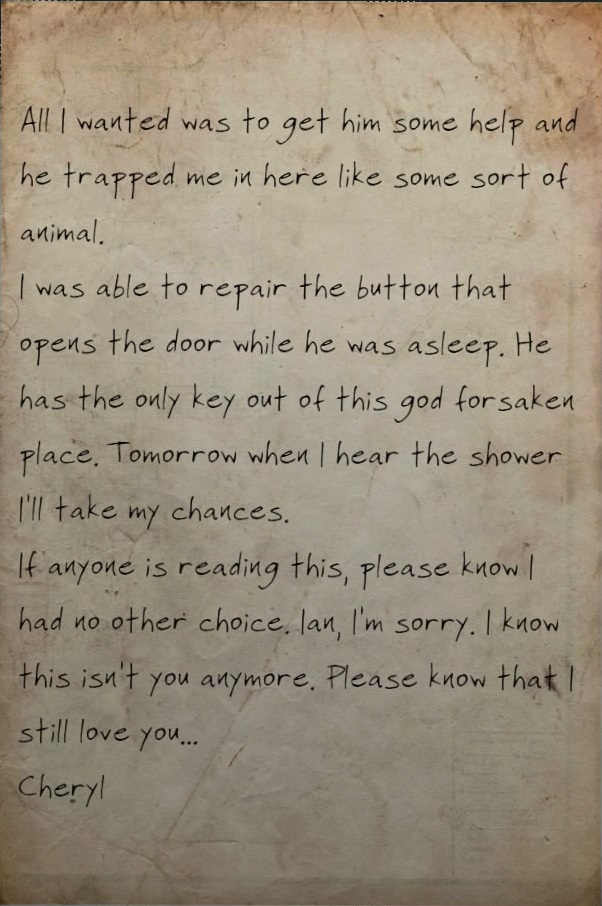 All I wanted was to get him some help and
he trapped me in here like some sort of
animal.
I was able to repair the button that
opens the door while he was asleep. He
has the only key out of this god forsaken
place. Tomorrow when I hear the shower
I'll take my chances.
If anyone is reading this, please know I
had no other choice. Ian, I'm sorry. I know
this isn't you anymore. Please know that I
still love you...
Cheryl